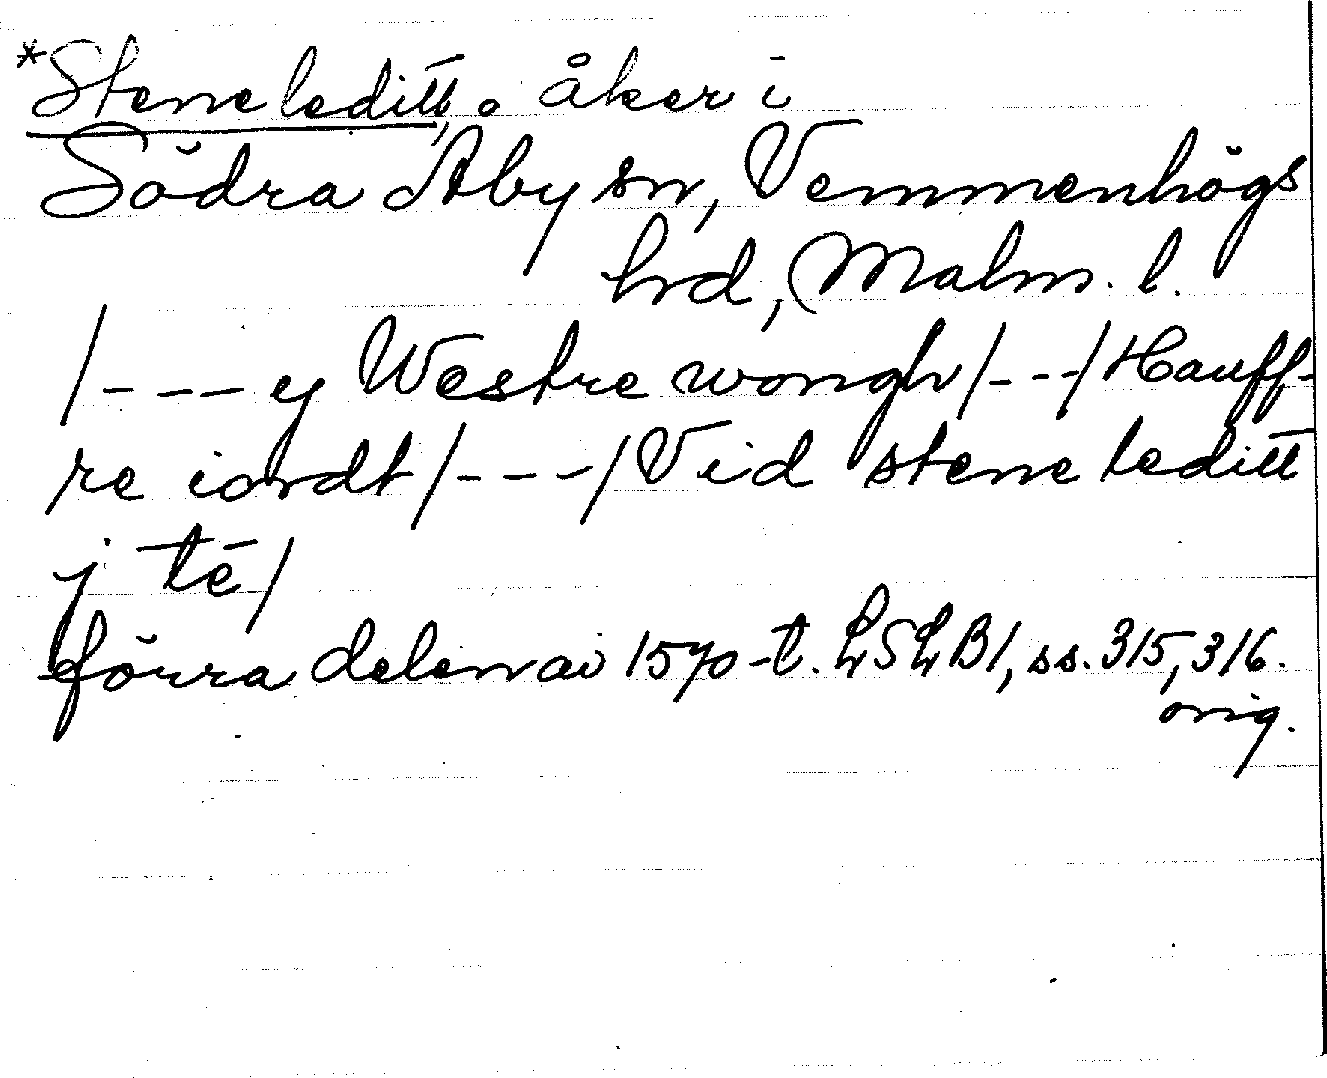 *Stene leditt, o åker i
Södra Åby sn, Vemmenhögs
hrd, Malm. l.
/---ej Westre wongh/---/Hauff-
re iordt/---/Vid stene leditt
j té/
förra delen av 1570-t. LSLB1, ss. 315, 316.
orig.